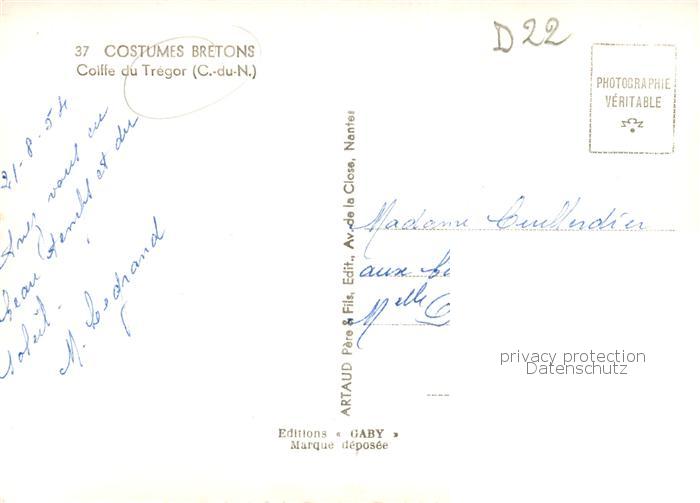 D22
37 COSTUMES BRETONS
Coiffe du Trégor (C.-du-N.)
PHOTOGRAPHIE
VÉRITABLE
21-8-54
vous un
beau et du
soleil.
M. Legrand
ARTAUD Père & Fils, Edit., Av. de la Close, Nantes
Madame
aux
Melle
privacy protection
Datenschutz
Editions « GABY »
Marque déposée